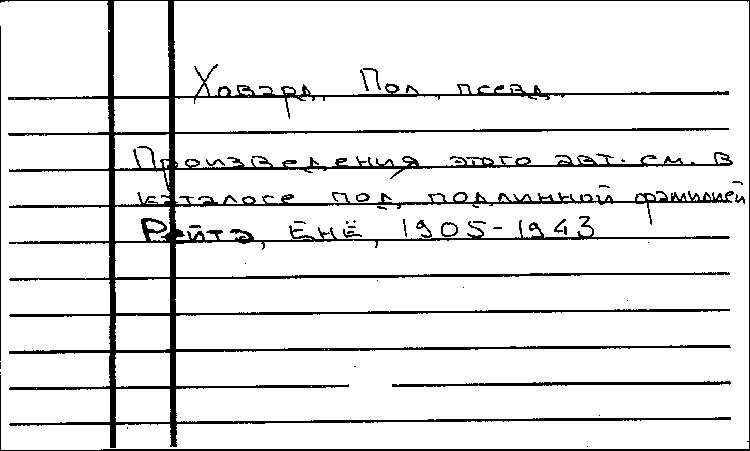 Ховард, Пол, псевд.
Произведения этого авт. см. в
каталоге под подлинной фамилией
Рейтэ, Енё, 1905-1943